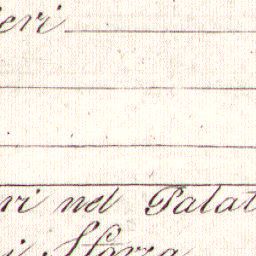 eri
ri nel Palat
i Sforza